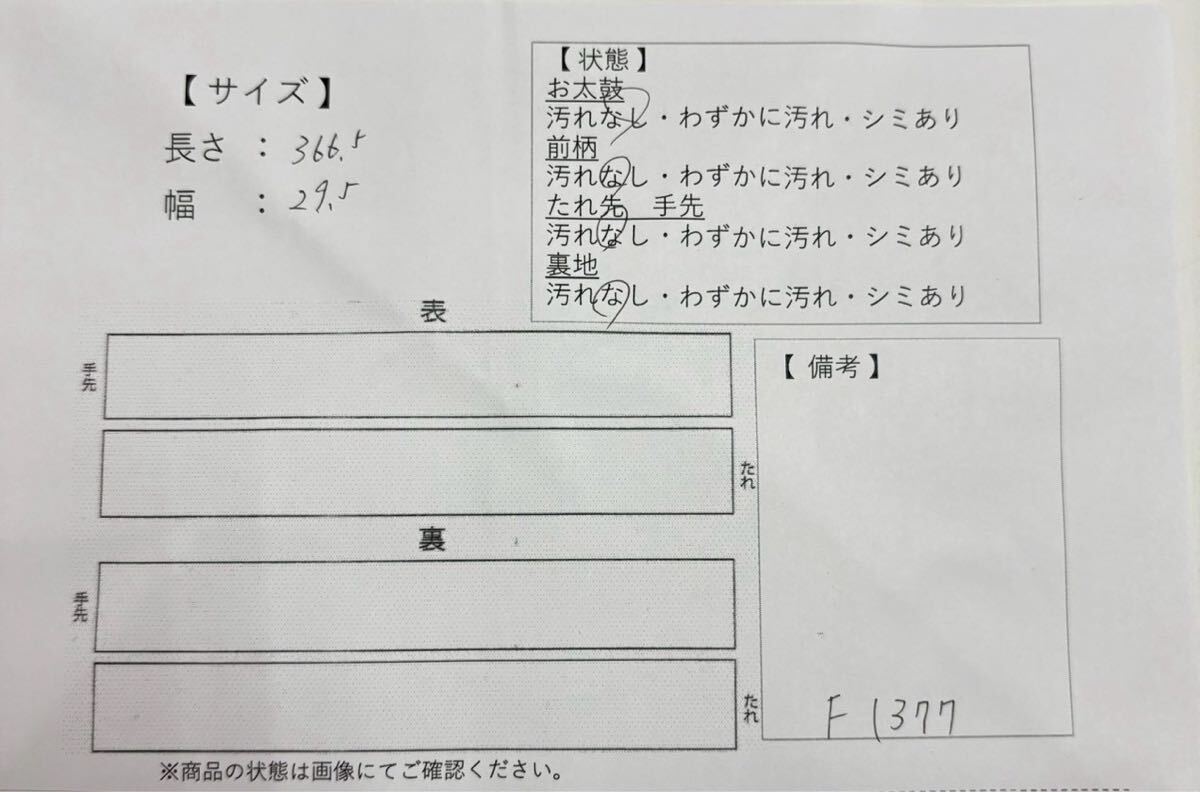 【サイズ】
長さ : 366.5
幅 : 29.5
【状態】
お太鼓
汚れなし・わずかに汚れ・シミあり
前柄
汚れなし・わずかに汚れ・シミあり
たれ先 手先
汚れなし・わずかに汚れ・シミあり
裏地
汚れなし・わずかに汚れ・シミあり
表
手先
たれ
裏
手先
たれ
【備考】
F1377
※商品の状態は画像にてご確認ください。